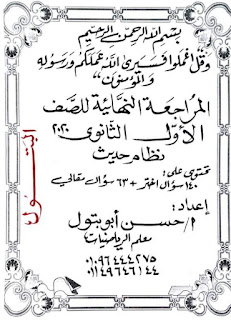 بسم الله الرحمن الرحيم
وقل اعملوا فسيرى الله عملكم ورسوله
والمؤمنون"
المراجعة النهائية للصف
الأول الثانوى ٢٠٢٠
نظام حديث
تحتوى على:
١٤٠ سؤال اختر + ٦٣ سؤال مقالى
إعداد:
أ/ حسن أبو بتول
معلم الرياضيات
٠١٠٩٦٤٤٤٢٧٥
٠١١٤٩٦٤٦١٤٤
البتول